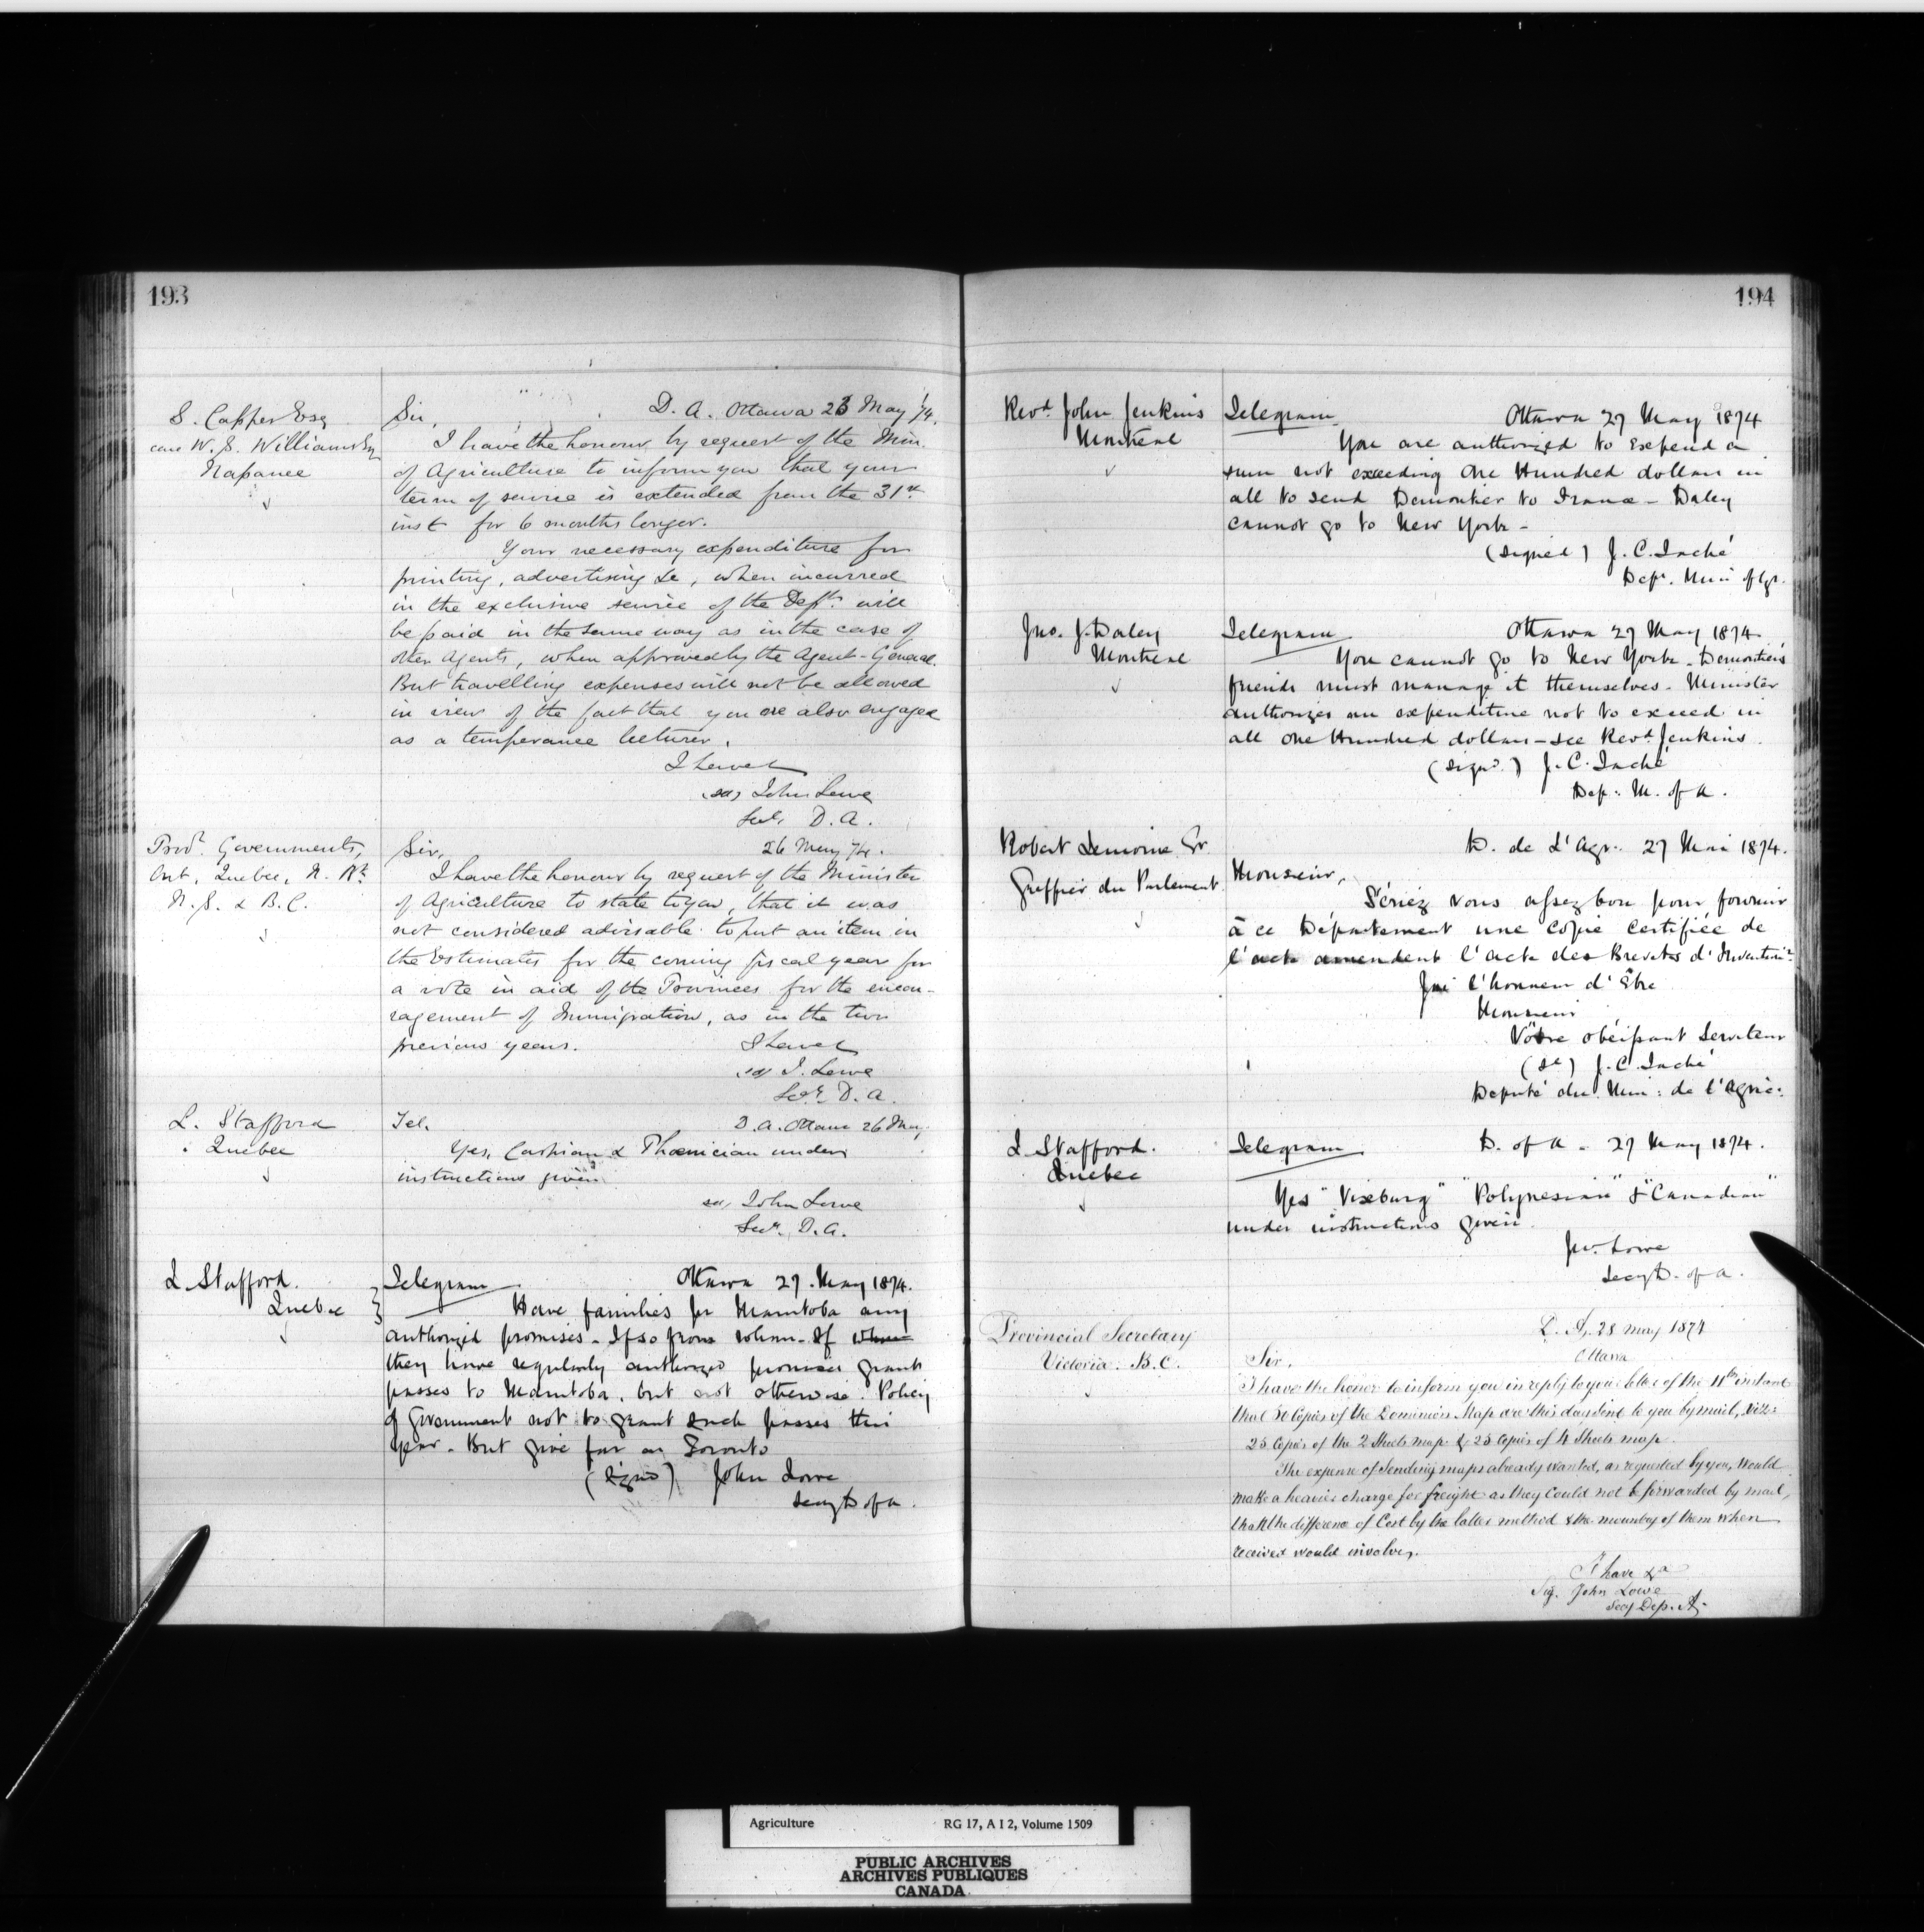 193
S. Capper Esq
care W. S. Williams Esq
Napanee
Sir, D. A. Ottawa 26 May '74.
I have the honour by request of the Min.
of Agriculture to inform you that your
term of service is extended from the 31st
inst for 6 months longer.
Your necessary expenditure for
printing, advertising &c, when incurred
in the exclusive service of the Deptt. will
be paid in the same way as in the case of
other Agents, when approved by the Agent-General.
But travelling expenses will not be allowed
in view of the fact that you are also engaged
as a temperance lecturer.
I have &c
(sd) John Lowe
Secy. D. A.
Provl. Governments,
Ont, Quebec, N. Bk
N. S. & B. C.
Sir, 26 May 74.
I have the honour by request of the Minister
of Agriculture to state to you, that it was
not considered advisable to put an item in
the Estimates for the coming fiscal year for
a vote in aid of the Provinces for the encou-
ragement of Immigration, as in the two
previous years. I have &c
(sd) J. Lowe
Secy. D. A.
L. Stafford
Quebec
Tel. D. A. Ottawa 26 May
Yes, & Phoenician under
instructions given
sd, John Lowe
Secy. D. A.
L Stafford.
Quebec
Telegram Ottawa 27. May 1874.
Have families for Manitoba any
authorized promises. If so from whom. If
they have regularly authorized promises grant
passes to Manitoba, but not otherwise. Policy
of Government not to grant such passes this
year. But give far as Toronto
(signed) John Lowe
Secy D. of A.
194
Revd. John Jenkins
Montreal
Telegram Ottawa 27 May 1874
You are authorized to expend a
sum not exceeding One Hundred dollars in
all to send Demontier to France - Daley
cannot go to New York -
(signed) J. C. Taché
Dep. Min of Agr.
Jno. J. Daley
Montreal
Telegram Ottawa 27 May 1874.
You cannot go to New York - Demontier's
friends must manage it themselves. Minister
authorizes an expenditure not to exceed in
all One Hundred dollars - see Revd Jenkins.
(Signd.) J. C. Taché
Dep: M. of A.
Robert Lemoine Er.
Greffier du Parlement
D. de L'Agr. 27 Mai 1874.
Monsieur,
Sériez vous assez bon pour fournir
à ce Département une Copie Certifiée de
l'acte amendent l'acte des Brevets d'Invention
J'ai l'honneur d'Être
Monsieur
Votre obéissant Serviteur
(Sd) J. C. Taché
Député du Min: de l'Agric:
L Stafford.
Quebec
Telegram D. of A - 27 May 1874.
Yes "Vixburg" "Polynesian" & "Canadian"
under instructions given.
Jno. Lowe
Secy D. of A.
Provincial Secretary
Victoria. B. C.
D. A. 28 May 1874
Ottawa
Sir,
I have the honor to inform you in reply to your letter of the 11th instant
that 50 Copies of the Dominion Map are this day sent to you by mail, viz:
25 Copies of the 2 Sheets map & 25 Copies of 4 Sheets map.
The expense of sending maps already , as requested by you, would
make a heavier charge for freight as they could not be forwarded by mail,
than the difference of Cost by the latter method & the mounting of them when
received would involve.
I have &a
Sig. John Lowe
Secy Dep. A.
Agriculture RG 17, A I 2, Volume 1509
PUBLIC ARCHIVES
ARCHIVES PUBLIQUES
CANADA